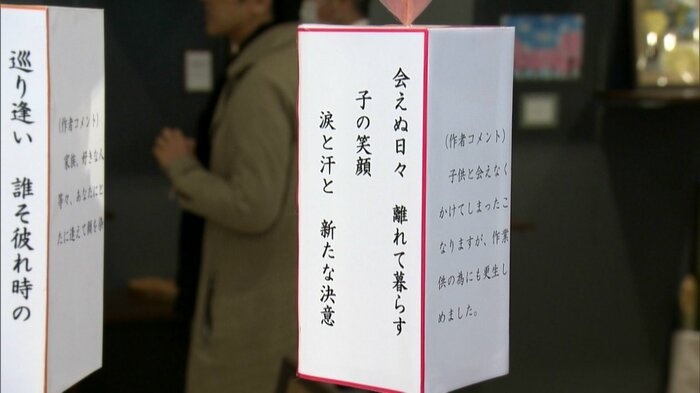 会えぬ日々　離れて暮らす
子の笑顔
涙と汗と　新たな決意
（作者コメント）
子供と会えなく
かけてしまったこ
なりますが、作業
供の為にも更生し
めました。
巡り逢い　誰そ彼れ時の
（作者コメント）
家族、好きな人
等々、あなたにと
たに逢えて顔を